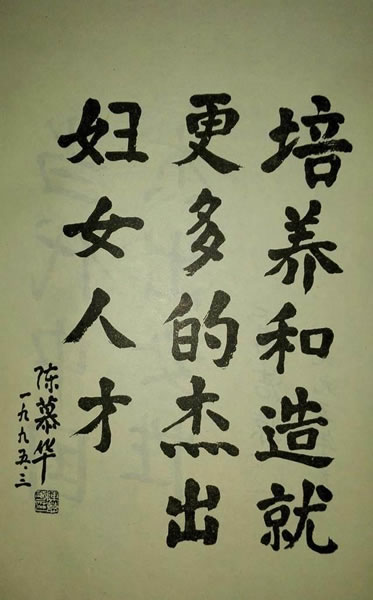 培养和造就
更多的杰出
妇女人才
陈慕华
一九九五·三